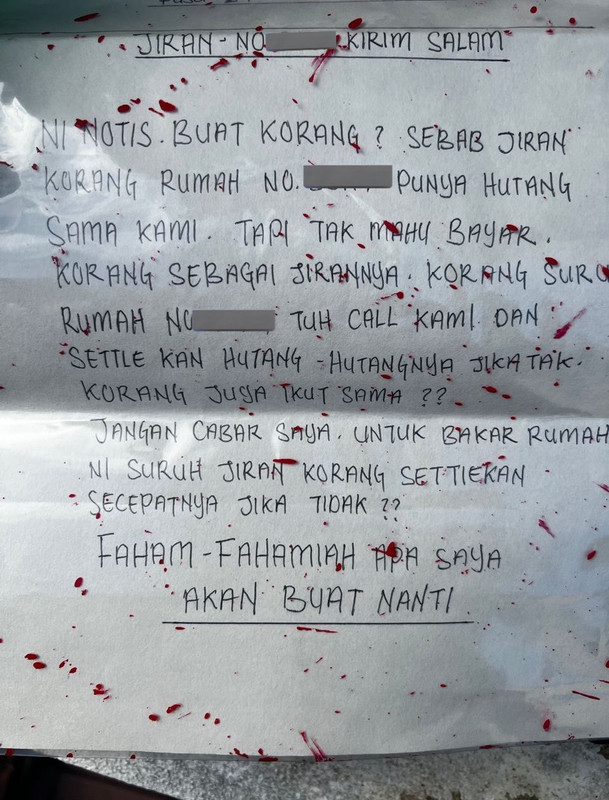 JIRAN - NO KIRIM SALAM
NI NOTIS. BUAT KORANG? SEBAB JIRAN
KORANG RUMAH NO. PUNYA HUTANG
SAMA KAMI. TAPI TAK MAHU BAYAR.
KORANG SEBAGAI JIRANNYA. KORANG SURU
RUMAH NO TUH CALL KAMI DAN
SETTLE KAN HUTANG - HUTANGNYA JIKA TAK.
KORANG JUGA IKUT SAMA ??
JANGAN CABAR SAYA. UNTUK BAKAR RUMAH
NI SURUH JIRAN KORANG SETTIEKAN
SECEPATNYA JIKA TIDAK ??
FAHAM - FAHAMIAH APA SAYA
AKAN BUAT NANTI